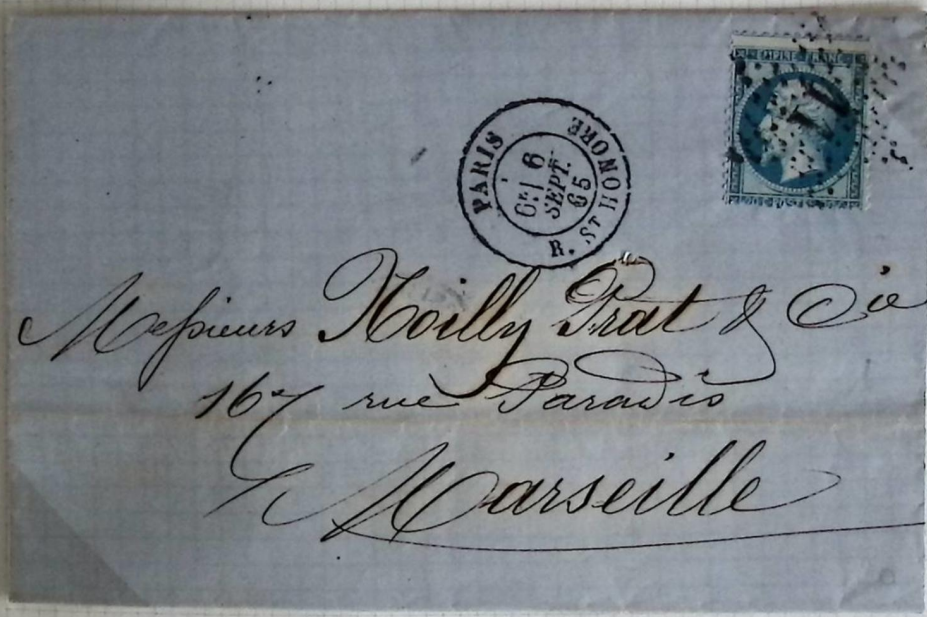 EMPIRE FRANC
11
20 C POSTES 20 C
PARIS
R. ST HONORE
6
SEPT.
65
Messieurs Noilly Prat & Cie
167 rue Paradis
Marseille